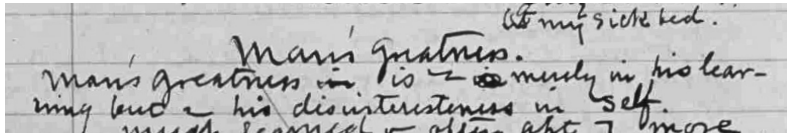 at my sick bed.
Man's greatness.
Man's greatness is merely in his lear-
ning but his disinteresteness in self.
much learned often apt more